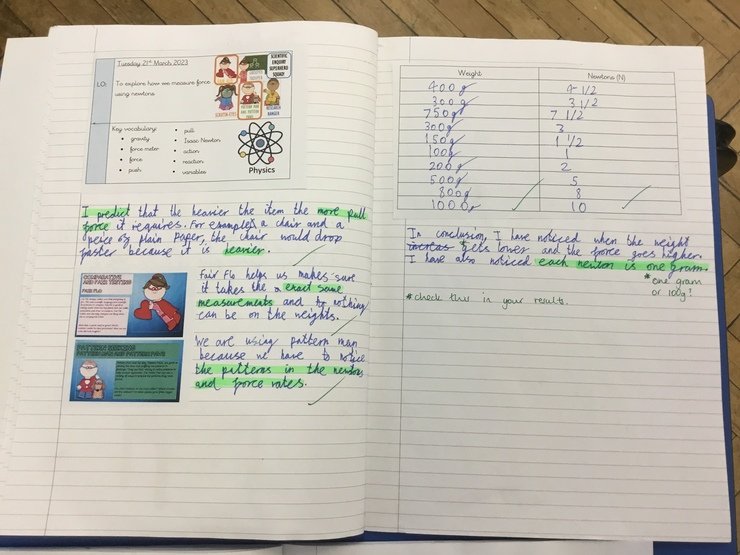 Tuesday 21st March 2023
LO:
To explore how we measure force
using newtons
SCIENTIFIC
ENQUIRY
SUPERHERO
SQUAD!
Key vocabulary:
gravity
force meter
force
push
pull
Isaac Newton
action
reaction
variables
Physics
I predict that the heavier the item the more pull
force it requires. For example, a chair and a
peice of plain paper, the chair would drop
faster because it is heavier.
COMPARATIVE
AND FAIR TESTING
FAIR FLO:
Fair Flo helps us makes sure
it takes the exact same
measurements and nothing
can be on the weights.
PATTERN SEEKING
PATTERN MAN AND PATTERN PAWS
We are using pattern man
because we have to notice
the patterns in the newtons
and force rates.
Weight Newtons (N)
400g 4 1/2
300g 3 1/2
750g 7 1/2
300g 3
150g 1 1/2
100g 1
200g 2
500g 5
800g 8
1000g 10
In conclusion, I have noticed when the weight
gets lower and the force goes higher.
I have also noticed each newton is one gram.
*one gram
or 100g?
*check this in your results.